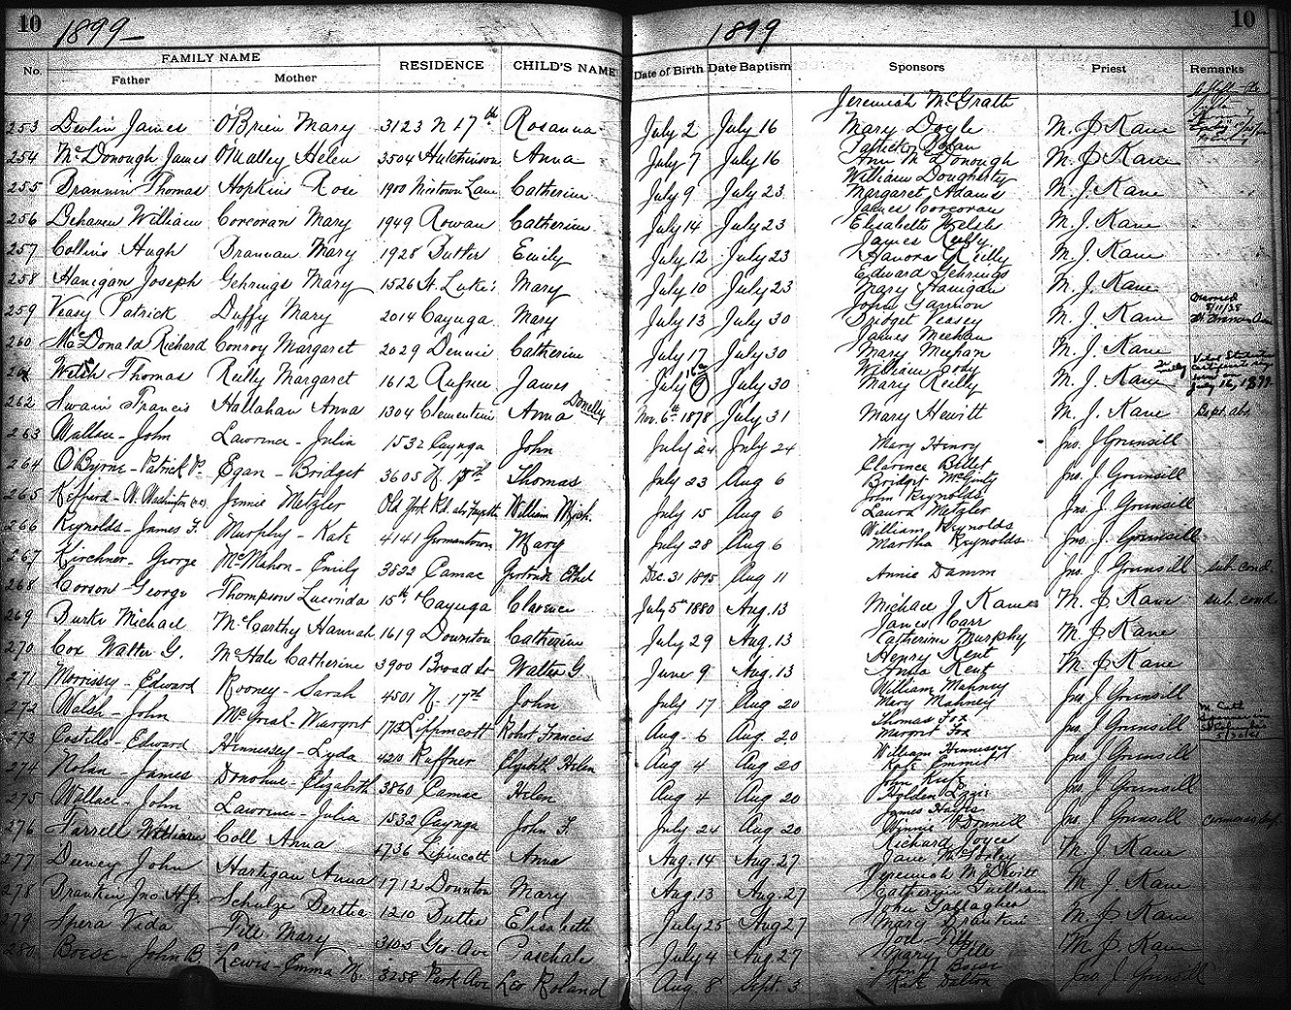 10 1899 1899 10
FAMILY NAME
No. Father Mother RESIDENCE CHILD'S NAME Date of Birth Date Baptism Sponsors Priest Remarks
Jeremiah McGrath
253 Devlin James O'Brien Mary 3123 N 17th Rosanna July 2 July 16 Mary Doyle M. J. Kane
254 McDonough James O'Malley Helen 3504 Hutchinson Anna July 7 July 16 Ann McDonough M. J. Kane
William Dougherty
255 Brannin Thomas Hopkins Rose 1900 Nicetown Lane Catherine July 9 July 23 Margaret Adams M. J. Kane
James Corcoran
256 Dehaven William Corcoran Mary 1949 Rowan Catherine July 14 July 23 Elisabeth Welsh M. J. Kane
James Reilly
257 Collins Hugh Brannan Mary 1928 Butler Emily July 12 July 23 Hanora Reilly M. J. Kane
Edward Gehrings
258 Hanigan Joseph Gehrings Mary 1526 St. Luke's Mary July 10 July 23 Mary Hanigan M. J. Kane
John Gannon
259 Veasy Patrick Duffy Mary 2014 Cayuga Mary July 13 July 30 Bridget Veasey M. J. Kane Married 8/11/28
James Meehan
260 McDonald Richard Conroy Margaret 2029 Dennie Catherine July 17 July 30 Mary Meehan M. J. Kane
William Cody
261 Welsh Thomas Reilly Margaret 1612 Rufner James July July 30 Mary Reilly M. J. Kane July 16, 1899
262 Swain Francis Hallahan Anna 1304 Clementine Anna Donelly Nov. 6th 1878 July 31 Mary Hewitt M. J. Kane Bapt. abs
263 Wallace - John Lawrence - Julia 1532 Cayuga John July 24 July 24 Mary Henry Jno. J Grensill
Clarence Billet
264 O'Byrne - Patrick P. Egan - Bridget 3605 N. 18th Thomas July 23 Aug 6 Bridget McGinty Jno. J. Grensill
John Reynolds
265 W. Washington Jennie Metzler Old York Rd. abv Fayette William July 15 Aug 6 Laura Metzler Jno. J. Grensill
William Reynolds
266 Reynolds - James F. Murphy - Kate 4141 Germantown Mary July 28 Aug 6 Martha Reynolds Jno. J. Grensill
267 Kirchner - George McMahon - Emily 3822 Camac Gertrude Ethel Dec. 31 1895 Aug 11 Annie Damm Jno. J Grensill sub. cond.
268 Corson George Thompson Lucinda 15th & Cayuga Clarence July 5th 1880 Aug. 13 Michael J Kanes M. J. Kane sub. cond
James Carr
269 Burke Michael McCarthy Hannah 1619 Dounton Catherine July 29 Aug. 13 Catherine Murphy M. J. Kane
Henry Kent
270 Cox Walter G. McHale Catherine 3900 Broad St Walter G June 9 Aug. 13 Anna Kent M. J. Kane
William Mahney
271 Morrissey - Edward Rooney - Sarah 4501 N. 17th John July 17 Aug 20 Mary Mahney Jno J Grensill
Thomas Fox
272 Walsh - John McGoral - Margaret Lippincott Robert Francis Aug. 6 Aug. 20 Margaret Fox Jno J Grensill
William Hennessey
273 Costello - Edward Hennessey - Lyda 4210 Ruffner Elizabeth Helen Aug 4 Aug 20 Kate Emmit Jno. J Grensill
274 Nolan - James Donohue - Elizabeth 3860 Camac Helen Aug 4 Aug 20 Holden Lizzie Jno. J Grensill
James Hawes
275 Wallace - John Lawrence - Julia 1532 Cayuga John F. July 24 Aug 20 Winnie O'Donnell Jno. J Grensill
Richard Joyce
276 Farrell William Coll Anna 4736 Lipincott Anna Aug. 14 Aug. 27 Jane McSorley M. J. Kane
Jeremiah McDevitt
277 Deeney John Hartigan Anna 1712 Dounton Mary Aug 13 Aug. 27 Catherine Sullivan M. J. Kane
John Gallagher
278 Brankin Jno. H. Jr. Schulze Bertha 1210 Butler Elisabeth July 25 Aug 27 Mary Brankin M. J. Kane
279 Spera Vida Pille Mary 3105 Ger. Ave Paschale July 4 Aug. 27 Mary Pille M. J. Kane
John Boese
280 Boese - John B Lewis - Emma M. 3258 Park Ave Leo Roland Aug. 8 Sept. 3 Kate Dalton Jno. J Grensill